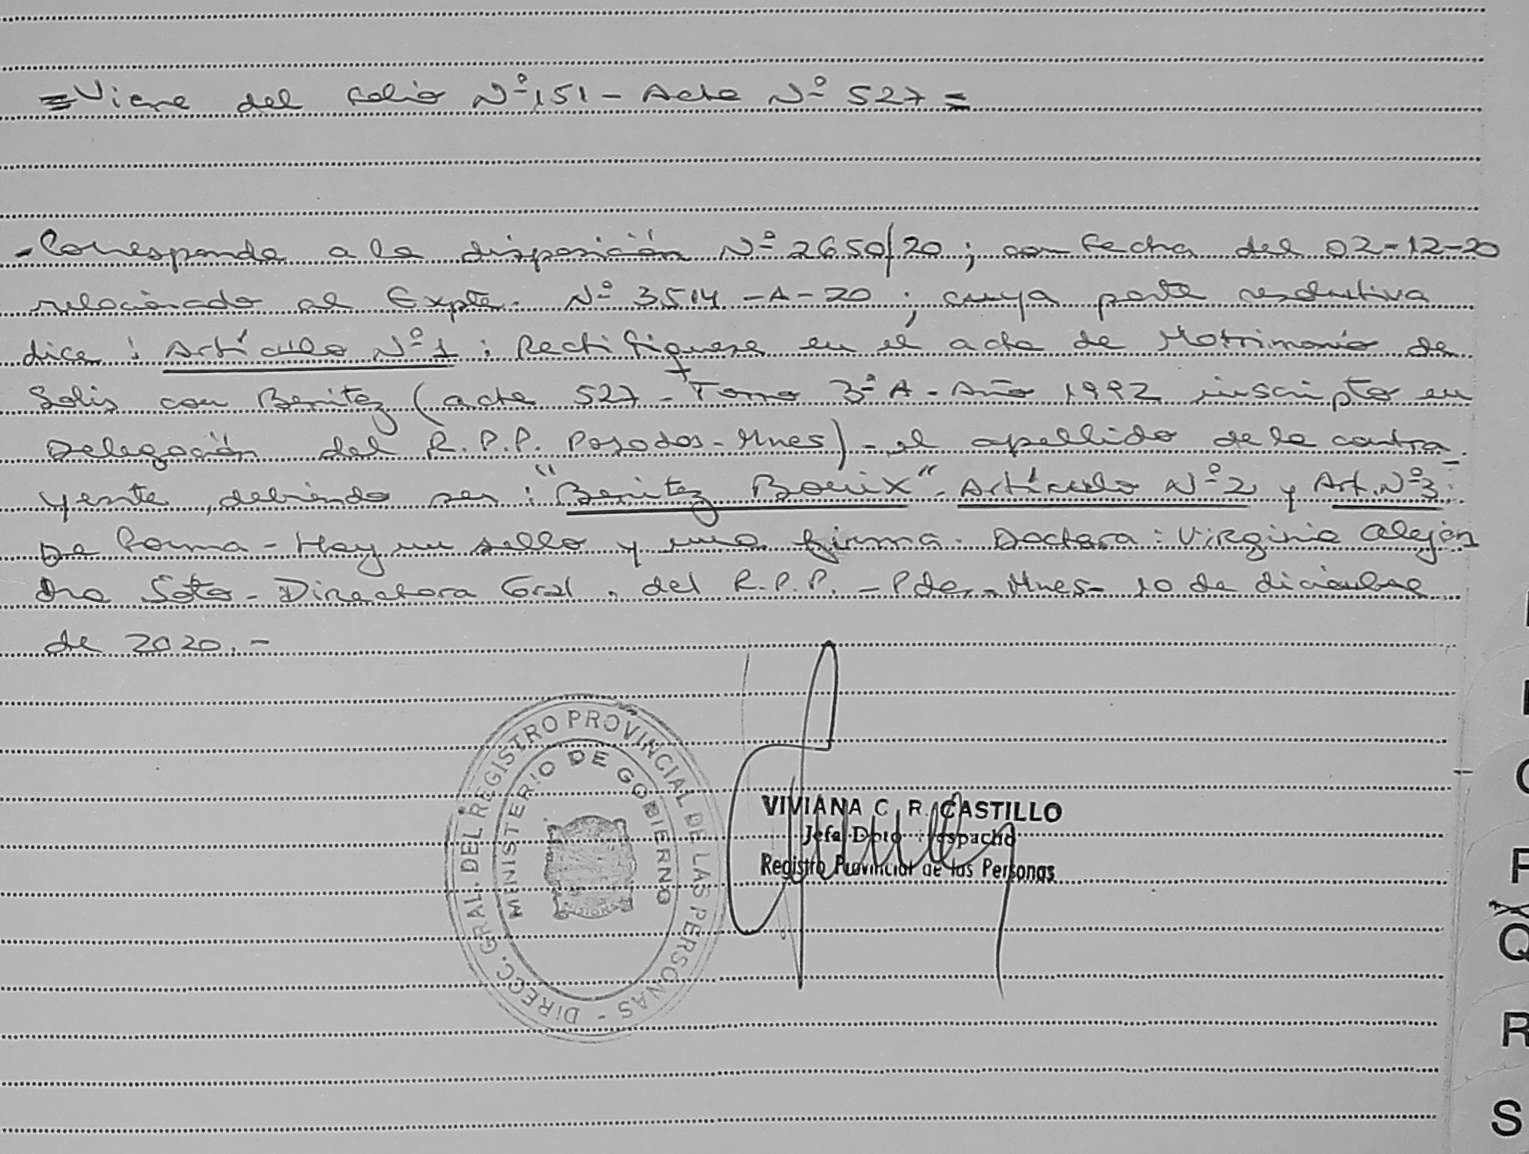 =Viene del folio Nº 151 - Acta Nº 527=
-Corresponde a la disposición Nº 2650/20; con fecha del 02-12-20
relacionado al Expte. Nº 3514-A-20; cuya parte resolutiva
dice: Artículo Nº 1: Rectifíquese en el acta de Matrimonio de
Solis con Benitez (acta 527 - Tomo 3º A - Año 1992 inscripto en
Delegación del R.P.P. Posadas-Mnes) - el apellido de la contra
yente, debiendo ser: "Benitez Bouix". Artículo Nº 2 y Art. Nº 3:
De forma - Hay un sello y una firma. Doctora: Virginia Alejan
dra Soto - Directora Gral. del R.P.P. - Pdas. Mnes - 10 de diciembre
de 2020.-
DIRECC. GRAL. DEL REGISTRO PROVINCIAL DE LAS PERSONAS -
MINISTERIO DE GOBIERNO
VIVIANA C. R. CASTILLO
Jefa Dpto Despacho
Registro Provincial de las Personas
Q
R
S